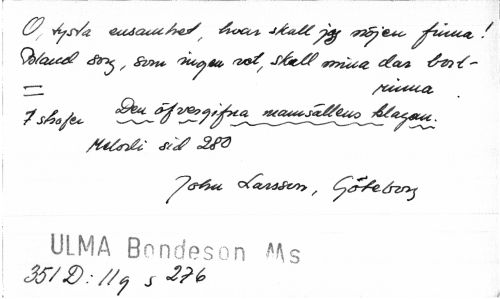 O, tysta ensamhet, hvar skall jag nöjen finna!
Bland sorg, som ingen vet, skall mina dar bort-
rinna
=
7 strofer Den öfvergifna mamsällens klagan.
Melodi sid 280
John Larsson, Göteborg
ULMA Bondeson Ms
351 D: 11 q s 276